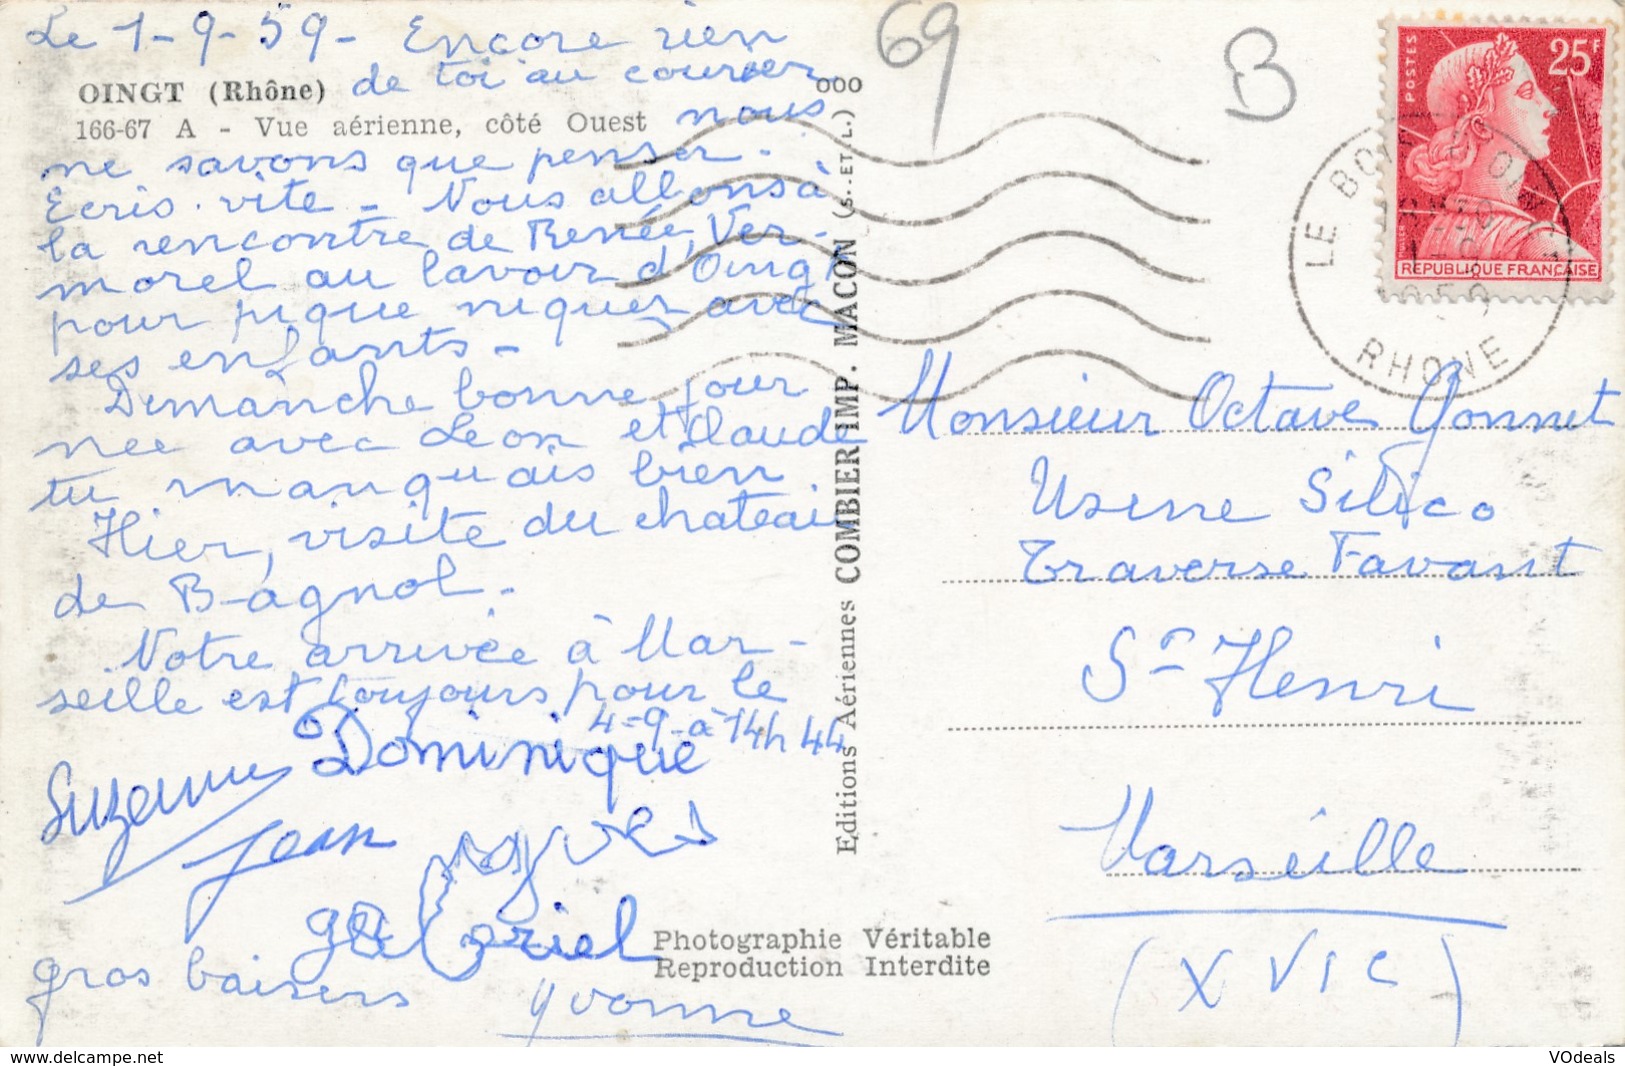 Le 1-9-59- Encore rien
de toi au courrier
OINGT (Rhône)
166-67 A - Vue aérienne, côté Ouest
nous
ne savons que penser.
Ecris vite - Nous allons à
la rencontre de Renée, Ver-
morel au lavoir d'Oingt
pour pique niquer avec
ses enfants -
Dimanche bonne jour
née avec Léon et Claude
tu manquais bien
Hier, visite du chateau
de Bagnol.
Notre arrivée à Mar-
seille est toujours pour le
4-9-à 14h 44
Dominique
Suzanne
Jean
Yves
gabriel
gros baisers
Yvonne
ooo
Editions Aériennes COMBIER IMP. MACON (S.-ET L.)
Photographie Véritable
Reproduction Interdite
69
B
POSTES
25F
REPUBLIQUE FRANÇAISE
LE BOIS D'OINGT
RHONE
Monsieur Octave Yonnet
Usine Silico
Traverse Favant
St Henri
Marseille
(XVIe)
VOdeals